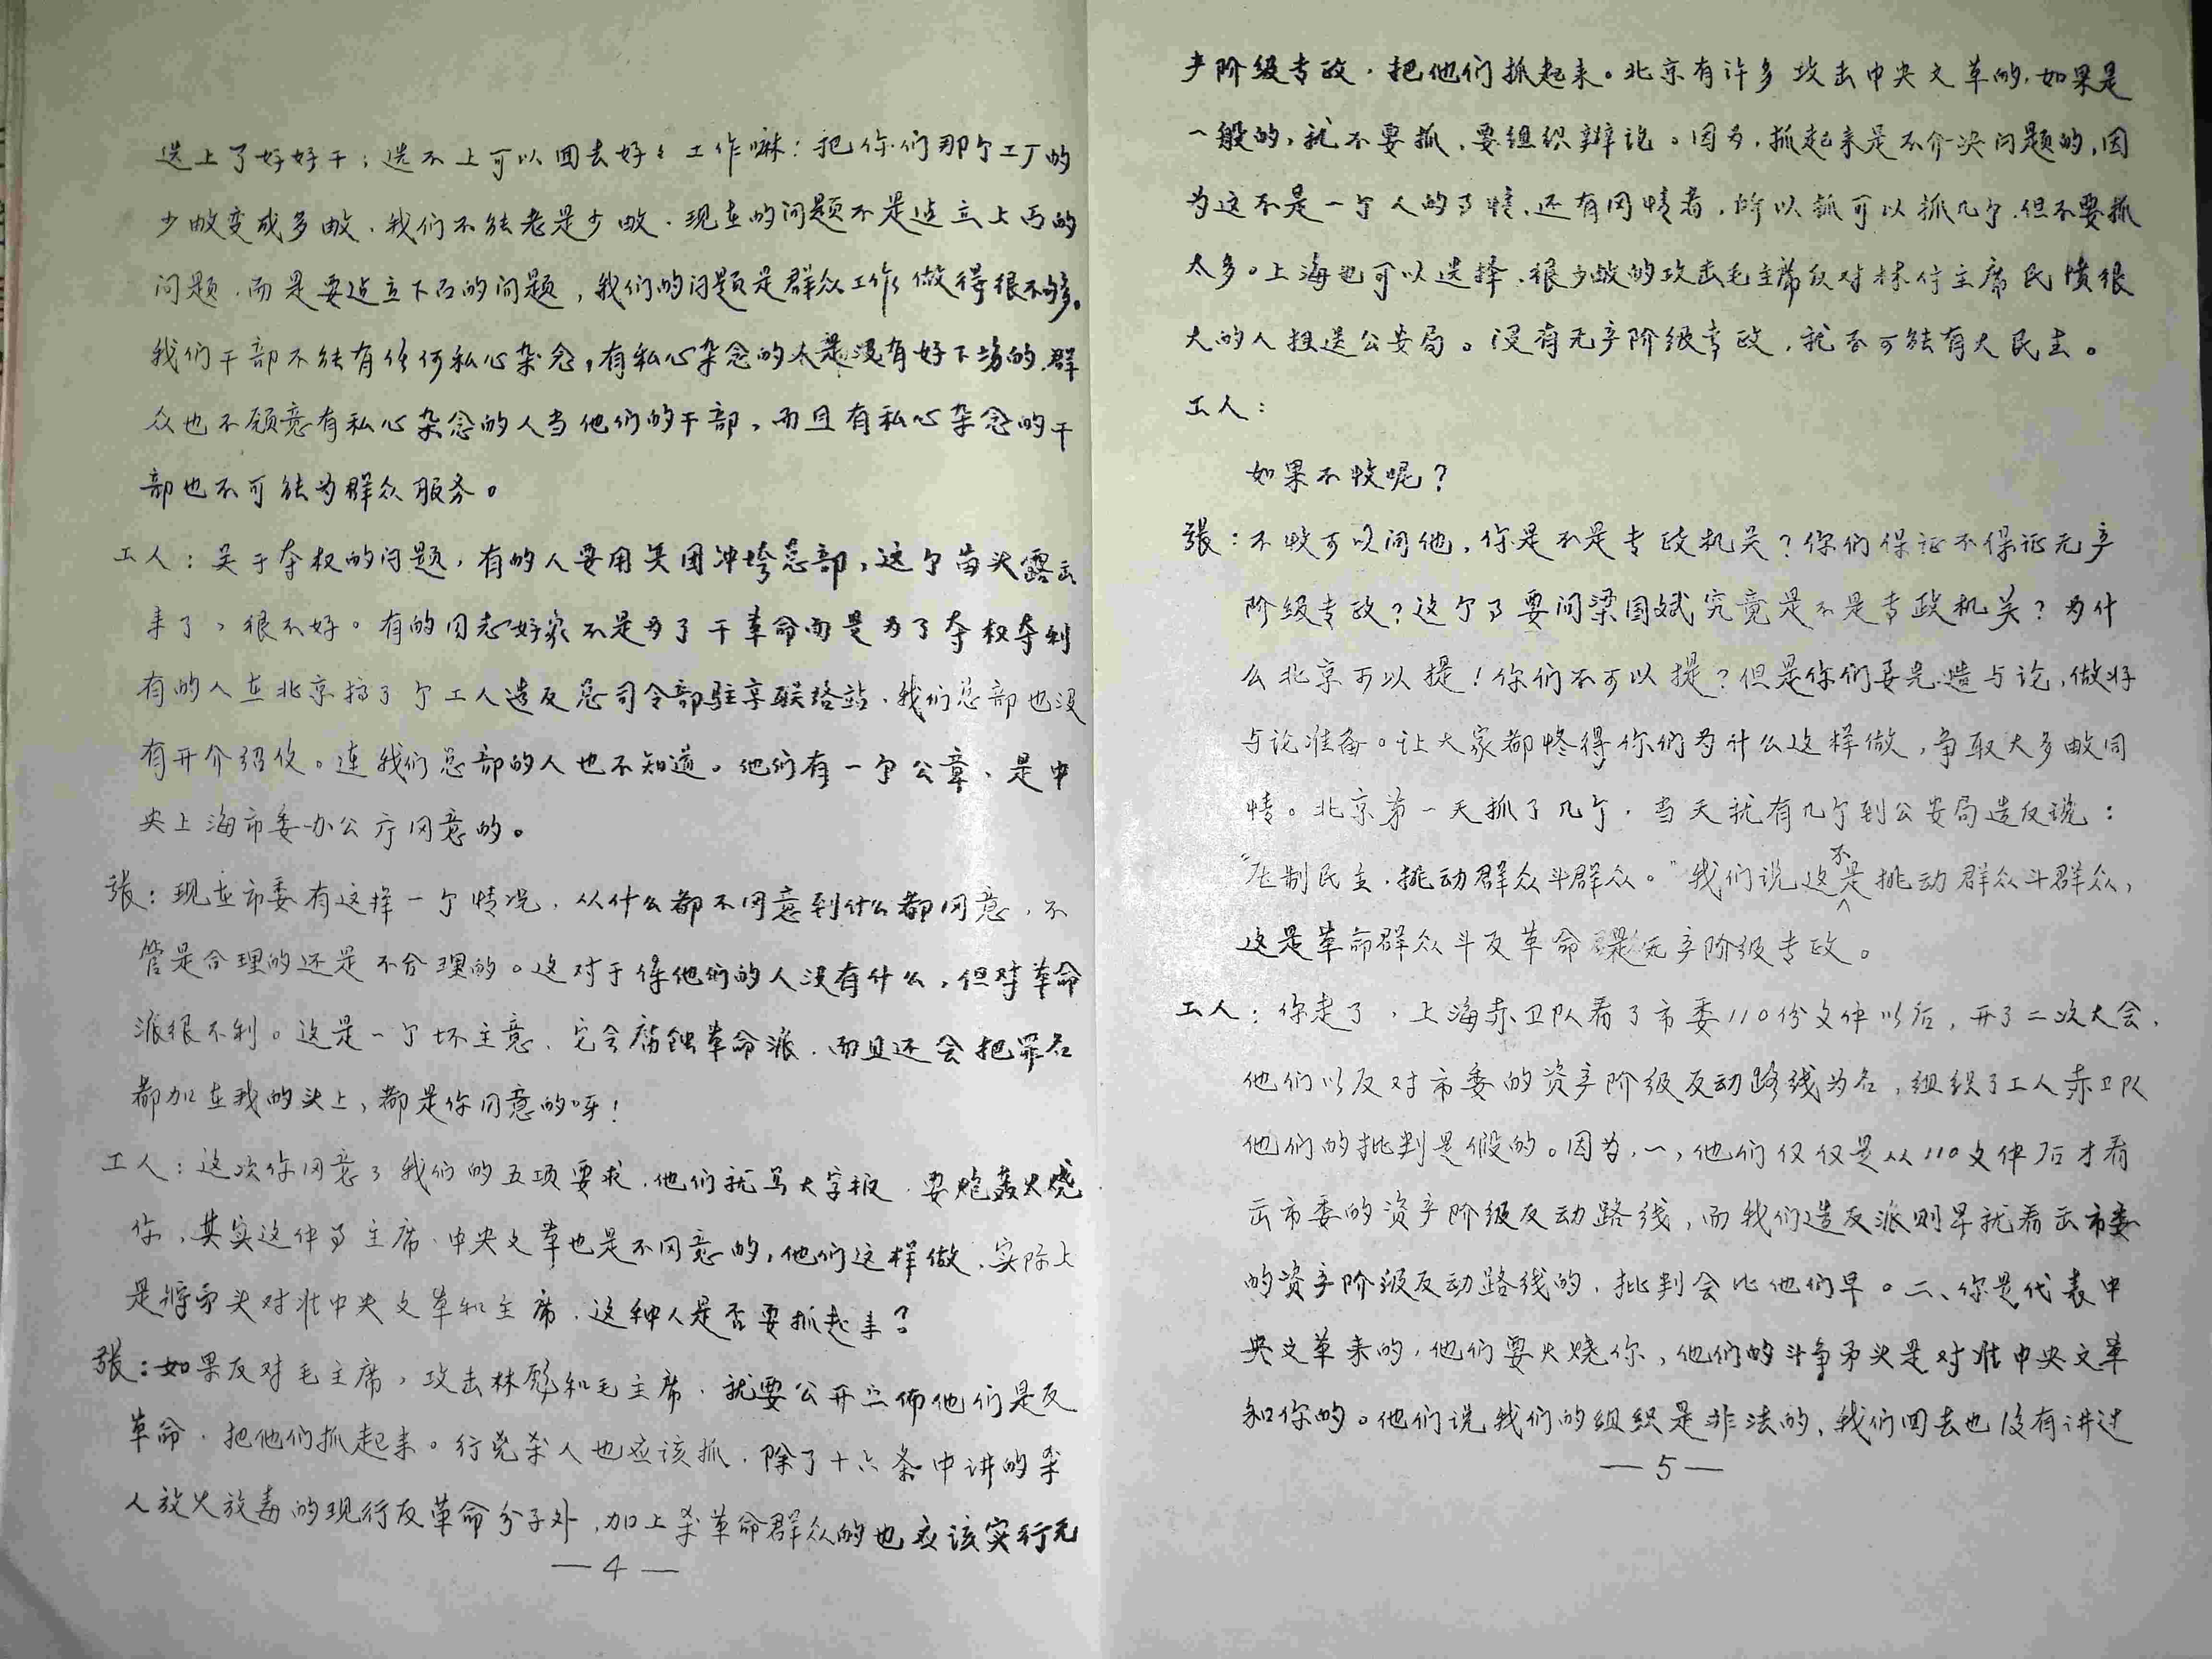 选上了好好干；选不上可以回去好々工作嘛！把你们那个工厂的
少畋变成多畋．我们不能老是少畋．现在的问题不是边立上面的
问题．而是要边立下面的问题，我们的问题是群众工作做得很不够。
我们干部不能有任何私心杂念，有私心杂念的人是没有好下场的．群
众也不愿意有私心杂念的人当他们的干部，而且有私心杂念的干
部也不可能为群众服务。
工人：关于夺权的问题，有的人要用兵团冲垮总部，这个苗头露出
来了，很不好。有的同志好象不是为了干革命而是为了夺权夺利
有的人在北京搞了个工人造反总司令部驻京联络站．我们总部也没
有开介绍信。连我们总部的人也不知道。他们有一个公章、是中
央上海市委办公厅同意的。
张：现在市委有这样一个情况，从什么都不同意到什么都同意，不
管是合理的还是不合理的。这对于保他们的人没有什么，但对革命
派很不利。这是一个坏主意、它会腐蚀革命派．而且还会把罪名
都加在我的头上，都是你同意的呀！
工人：这次你同意了我们的五项要求．他们就写大字报．要炮轰火烧
你，其实这件事主席、中央文革也是不同意的，他们这样做、实际上
是将矛头对准中央文革和主席．这种人是否要抓起来？
张：如果反对毛主席，攻击林彪和毛主席．就要公开宣佈他们是反
革命．把他们抓起来。行凶杀人也应该抓．除了十六条中讲的杀
人放火放毒的现行反革命分子外，加上杀革命群众的也应该实行无
—4—
产阶级专政．把他们抓起来。北京有许多攻击中央文革的，如果是
一般的，就不要抓．要组织辩论。因为，抓起来是不介决问题的，因
为这不是一个人的事情、还有同情者．所以抓可以抓几个．但不要抓
太多。上海也可以选择．很少畋的攻击毛主席反对林付主席民愤很
大的人扭送公安局。没有无产阶级专政，就不可能有大民主。
工人：
如果不收呢？
张：不收可以问他，你是不是专政机关？你们保证不保证无产
阶级专政？这个事要问梁国斌究竟是不是专政机关？为什
么北京可以提！你们不可以提？但是你们要先造与论，做好
与论准备。让大家都懂得你们为什么这样做，争取大多畋同
情。北京第一天抓了几个．当天就有几个到公安局造反说：
“压制民主．挑动群众斗群众。”我们说这不是挑动群众斗群众，
这是革命群众斗反革命是无产阶级专政。
工人：你走了，上海赤卫队看了市委110份文件以后，开了二次大会．
他们以反对市委的资产阶级反动路线为名，组织了工人赤卫队
他们的批判是假的。因为，一，他们仅仅是从110文件后才看
出市委的资产阶级反动路线，而我们造反派则早就看出市委
的资产阶级反动路线的，批判会比他们早。二、你是代表中
央文革来的，他们要火烧你，他们的斗争矛头是对准中央文革
和你的。他们说我们的组织是非法的，我们回去也没有讲过
—5—